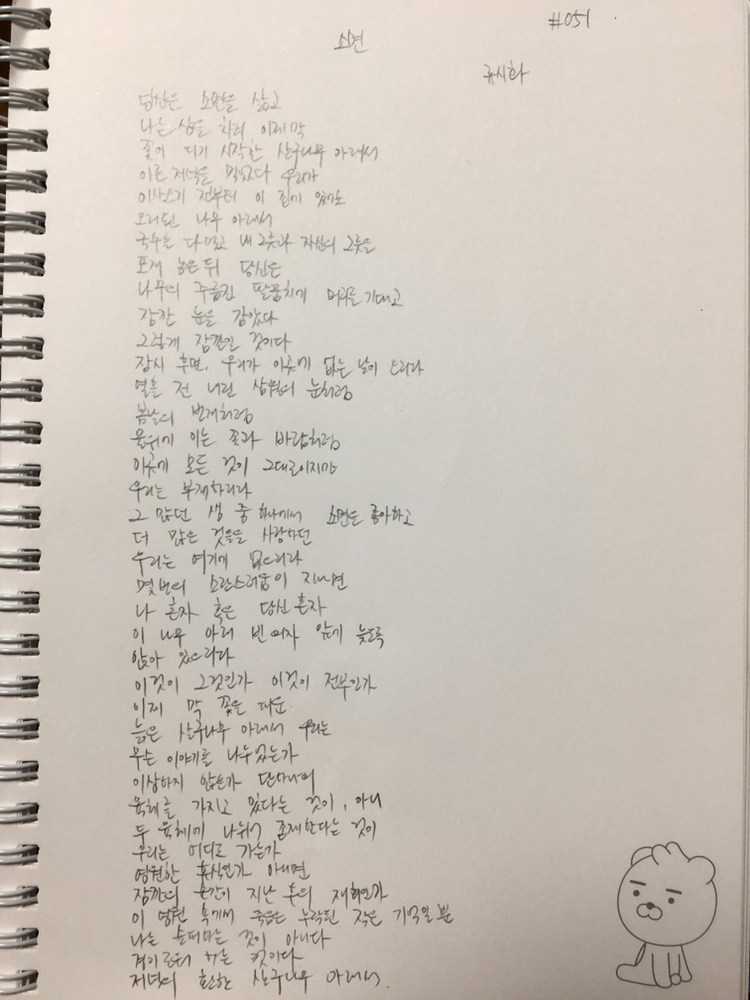 #051
소면
류시화
당신은 소면을 삶고
나는 상을 차려 이제 막
꽃이 피기 시작한 살구나무 아래서
이른 저녁을 먹었다 우리가
이사오기 전부터 이 집에 있어온
오래된 나무 아래서
국수를 다 먹고 내 그릇과 자신의 그릇을
포개 놓은 뒤 당신은
나무의 주름진 팔꿈치에 머리를 기대고
잠깐 눈을 감았다
그렇게 잠깐일 것이다
잠시 후면, 우리가 이곳에 없는 날이 오리라
열흘 전 내린 삼월의 눈처럼
봄날의 번개처럼
물위에 이는 꽃과 바람처럼
이곳에 모든 것이 그대로이지만
우리는 부재하리라
그 많던 생 중 하나에서 소면을 좋아하고
더 많은 것들을 사랑하던
우리는 여기에 없으리라
몇 번의 소란스러움이 지나면
나 혼자 혹은 당신 혼자
이 나무 아래 빈 의자 앞에 늦도록
앉아 있으리라
이것이 그것인가 이것이 전부인가
이제 막 꽃을 피운
늙은 살구나무 아래서 우리는
무슨 이야기를 나누었는가
이상하지 않은가 단 하나의
육체를 가지고 있다는 것이, 아니
두 육체에 나뉘어 존재한다는 것이
우리는 어디로 가는가
영원한 휴식인가 아니면
잠깐의 순간이 지난 후의 재회인가
이 영원 속에서 죽음은 누락된 작은 기억일 뿐
나는 슬퍼하는 것이 아니다
경이로워 하는 것이다
저녁의 환한 살구나무 아래서.